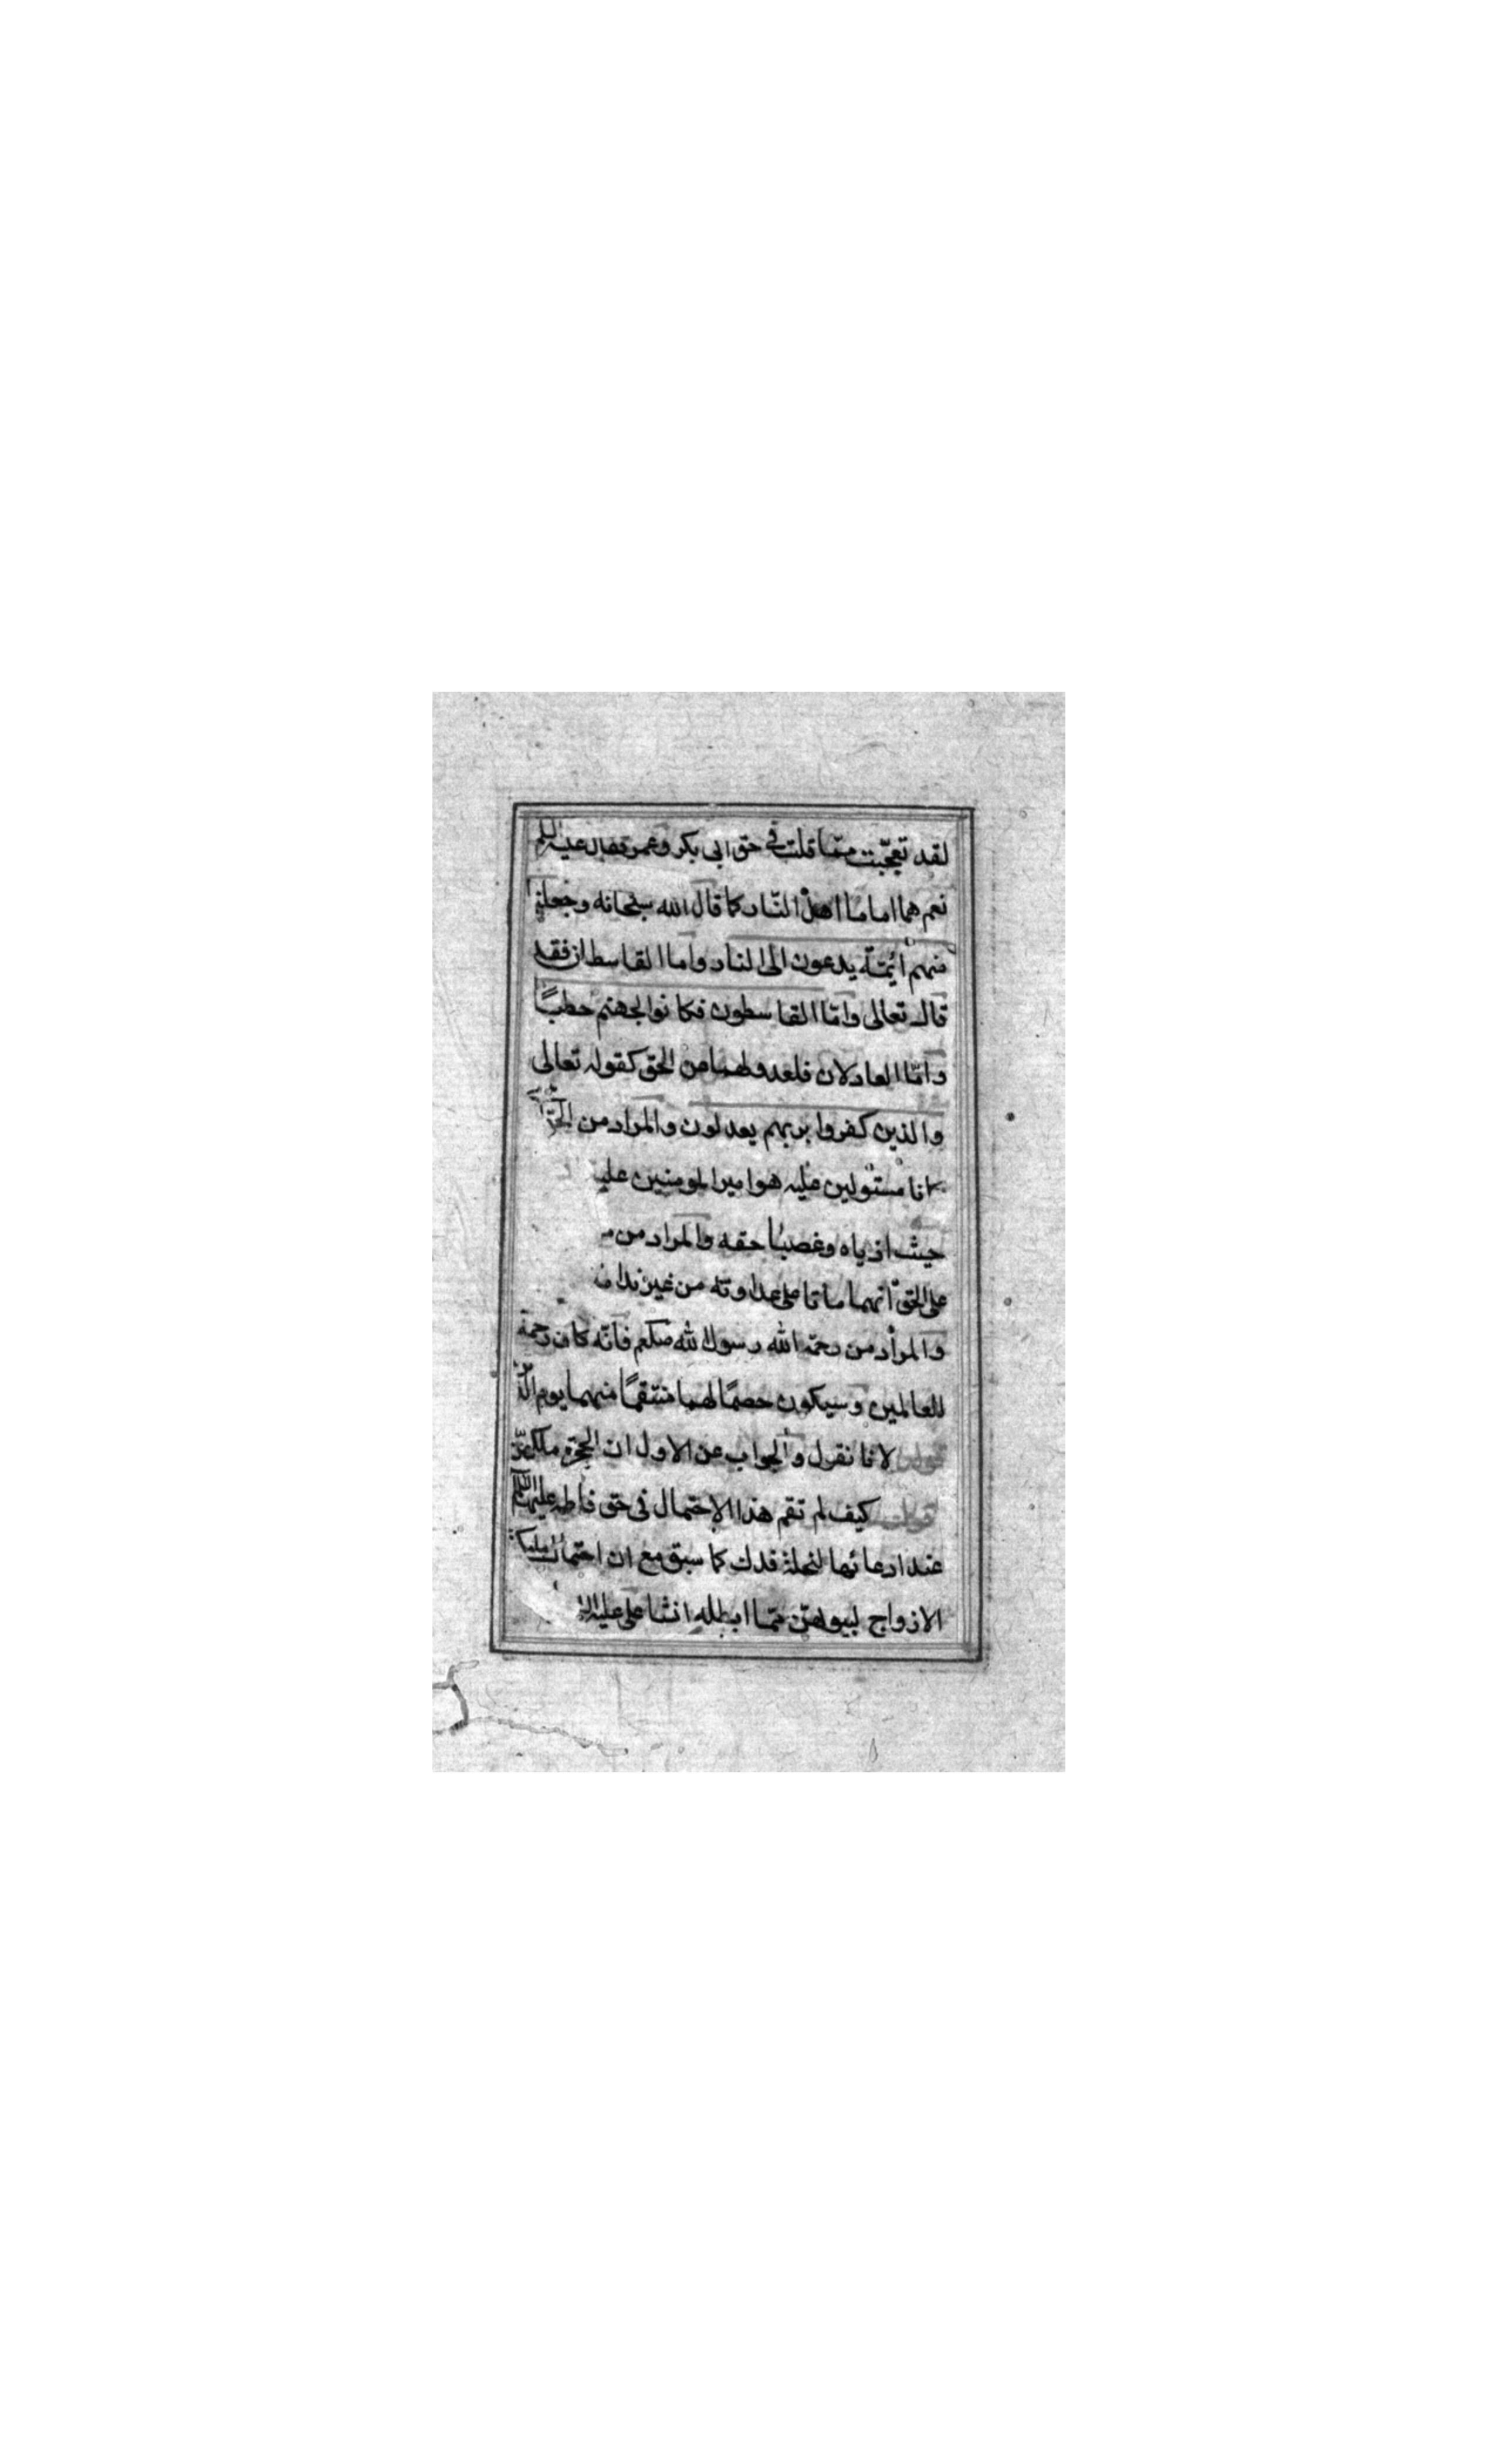 لقد تعجّبت ممّا قلت في حق ابى بكر وعمر فقال عليه السلم
نعم هما اماما اهل النّار كما قال الله سبحانه وجعلنا
منهم ائمّة يدعون الى النار واما القاسطان فقد
قال تعالى وامّا القاسطون فكانوا لجهنم حطبًا
وامّا العادلان فلعدولهما من الحق كقوله تعالى
والذين كفروا بربهم يعدلون والمراد من الحقّ
كانا مستولين عليه هو امير المومنين عليه
حيث اذياه وغصبا حقه والمراد من
على الحقّ انهما ماتا على عداوته من غير ندامة
والمراد من رحمة الله رسول الله صلعم فانّه كان رحمة
للعالمين وسيكون خصمًا لهما منتقمًا منهما يوم الدّين
قوله لانا نقول والجواب عن الاول ان الحجرة ملكهنّ
قولت كيف لم تقم هذا الاحتمال فى حق فاطمه عليها السلم
عند ادعائها لنحلة فدك كما سبق مع ان احتمال ملكية
الازواج لبيوتهنّ ممّا ابطله انشا على عليه